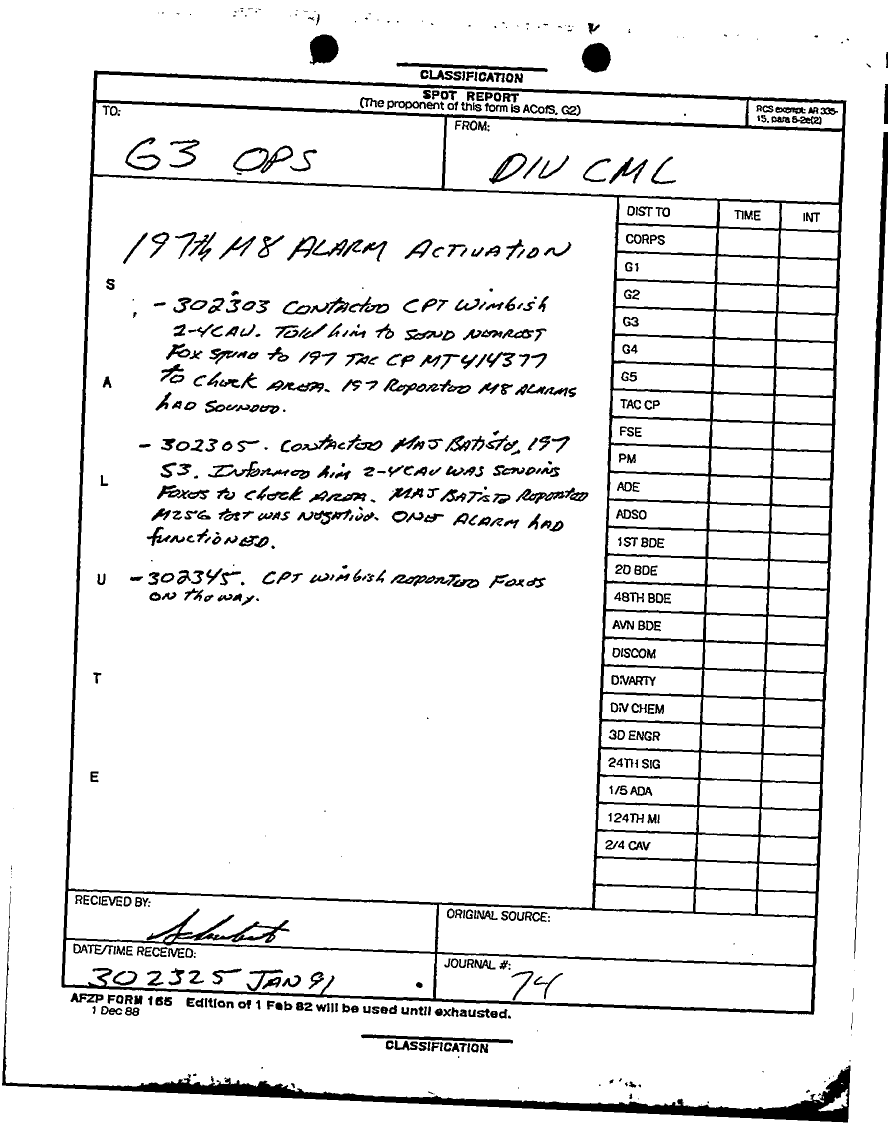 CLASSIFICATION
SPOT REPORT
(The proponent of this form is ACofS, G2)
RCS exempt: AR 335-
15, para 5-2e(2)
TO:
G3 OPS
FROM:
DIV CML
DIST TO TIME INT
CORPS
G1
G2
G3
G4
G5
TAC CP
FSE
PM
ADE
ADSO
1ST BDE
2D BDE
48TH BDE
AVN BDE
DISCOM
DIVARTY
DIV CHEM
3D ENGR
24TH SIG
1/5 ADA
124TH MI
2/4 CAV
S
A
L
U
T
E
197th M8 ALARM ACTIVATION
- 302303 CONTACTED CPT Wimbish
2-4CAV. TOLD him to SEND NEAREST
FOX SQUAD to 197 TAC CP MT414377
to Check AREA. 197 REPORTED M8 ALARMS
hAD SOUNDED.
- 302305. CONTACTED MAJ BATISTE, 197
S3. INFORMED him 2-4CAV WAS SENDING
FOXES to Check AREA. MAJ BATISTE REPORTED
M256 TEST WAS NEGATIVE. ONE ALARM hAD
FUNCTIONED.
- 302345. CPT Wimbish REPORTED FOXES
ON the WAY.
RECIEVED BY:
ORIGINAL SOURCE:
DATE/TIME RECEIVED:
302325 JAN 91
JOURNAL #:
74
AFZP FORM 165 Edition of 1 Feb 82 will be used until exhausted.
1 Dec 88
CLASSIFICATION